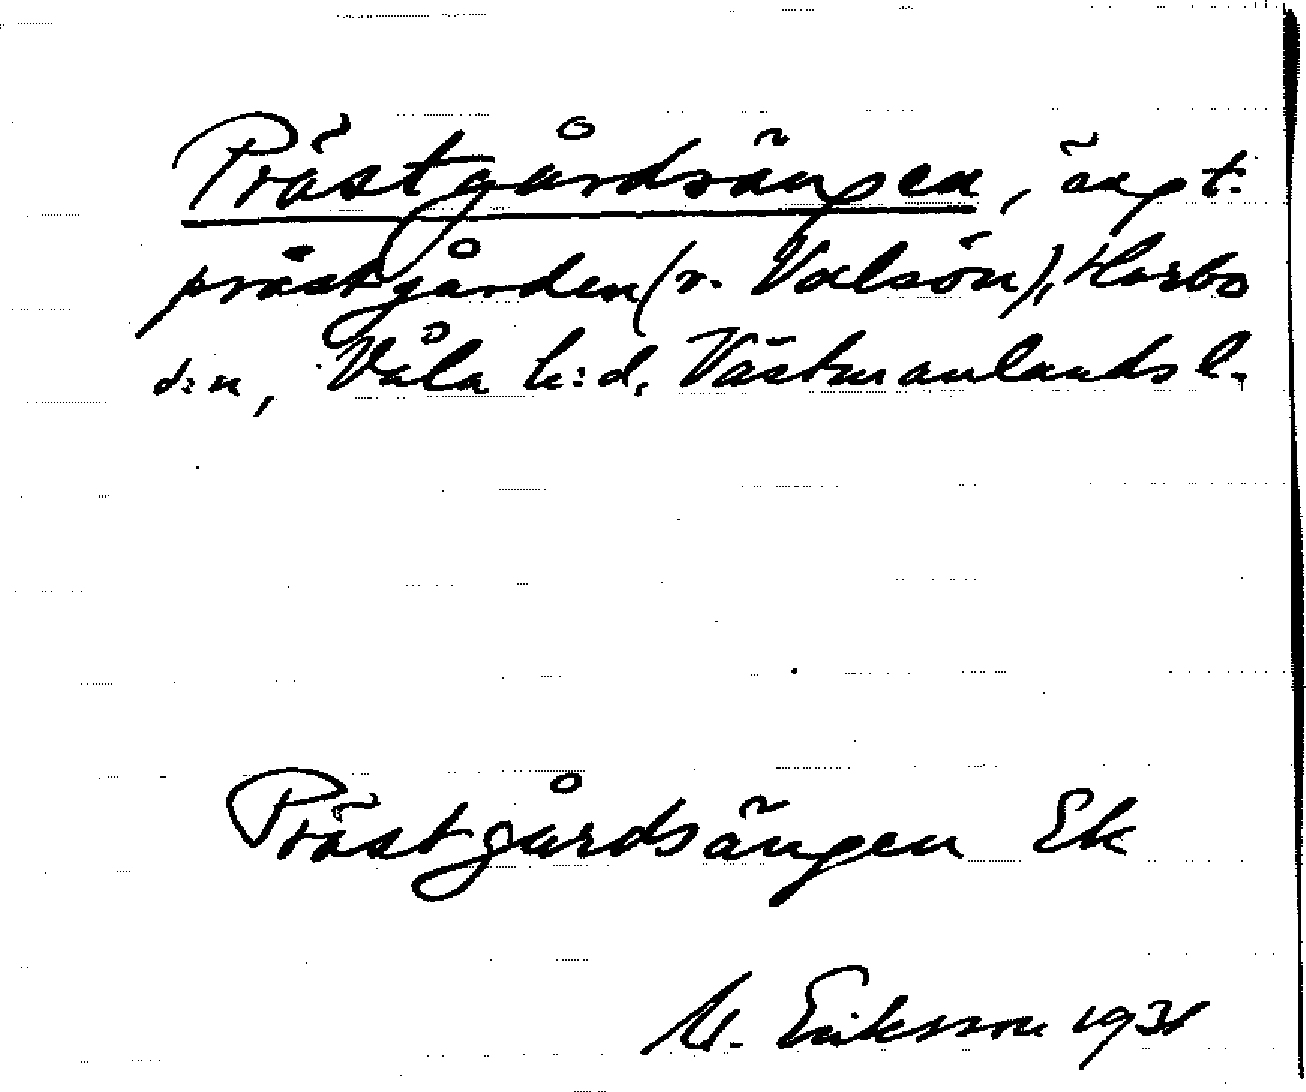 Prästgårdsängen, äng t.
prästgården (v. Valsön), Harbo
s:n, Våla h:d, Västmanlands l.
Prästgårdsängen Ek
M. Eriksson 1931